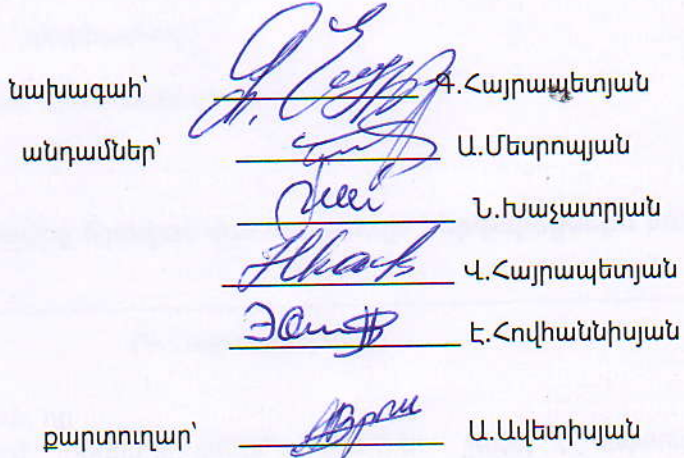 նախագահ՝ Գ.Հայրապետյան
անդամներ՝ Ա.Մեսրոպյան
Ն.Խաչատրյան
Վ.Հայրապետյան
Է.Հովհաննիսյան
քարտուղար՝ Ա.Ավետիսյան